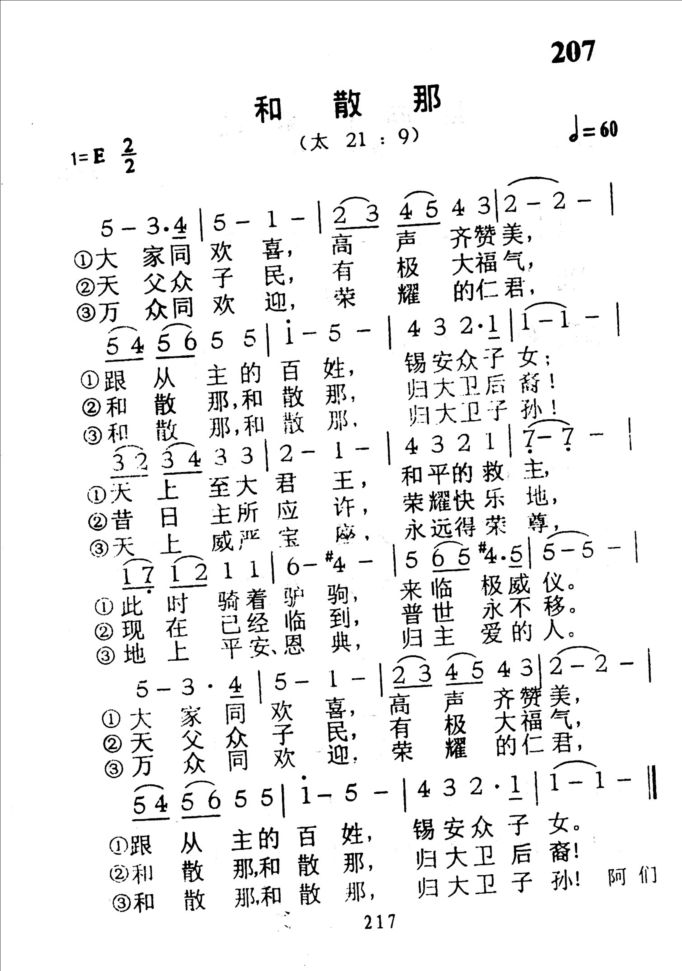 207
和 散 那
(太 21:9)
1=E 2/2
♩=60
5 - 3·4 | 5 - 1 - | 2 3 4 5 4 3 | 2 - 2 - |
①大 家同 欢 喜, 高 声 齐赞美,
②天 父众 子 民, 有 极 大福气,
③万 众同 欢 迎, 荣 耀 的仁君,
5 4 5 6 5 5 | i - 5 - | 4 3 2·1 | 1 - 1 - |
①跟 从 主 的 百 姓, 锡安众子 女;
②和 散 那,和 散 那, 归大卫后 裔!
③和 散 那,和 散 那, 归大卫子 孙!
3 2 3 4 3 3 | 2 - 1 - | 4 3 2 1 | 7 - 7 - |
①天 上 至大 君 王, 和平的救 主,
②昔 日 主所 应 许, 荣耀快乐 地,
③天 上 威严 宝 座, 永远得荣 尊,
1 7 1 2 1 1 | 6 - #4 - | 5 6 5 #4·5 | 5 - 5 - |
①此 时 骑着 驴 驹, 来 临 极威 仪。
②现 在 已经 临 到, 普 世 永不 移。
③地 上 平安、恩 典, 归 主 爱的 人。
5 - 3·4 | 5 - 1 - | 2 3 4 5 4 3 | 2 - 2 - |
①大 家 同 欢 喜, 高 声 齐赞美,
②天 父 众 子 民, 有 极 大福气,
③万 众 同 欢 迎, 荣 耀 的仁君,
5 4 5 6 5 5 | i - 5 - | 4 3 2·1 | 1 - 1 - ‖
①跟 从 主的 百 姓, 锡安众 子 女。
②和 散 那,和 散 那, 归大卫 后 裔!
③和 散 那,和散 那, 归大卫 子 孙! 阿 们
217